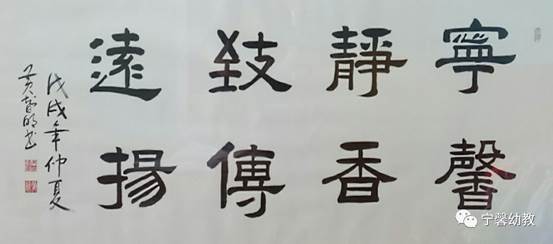 寧靜致遠
馨香傳揚
戊戌年仲夏
宁馨幼教